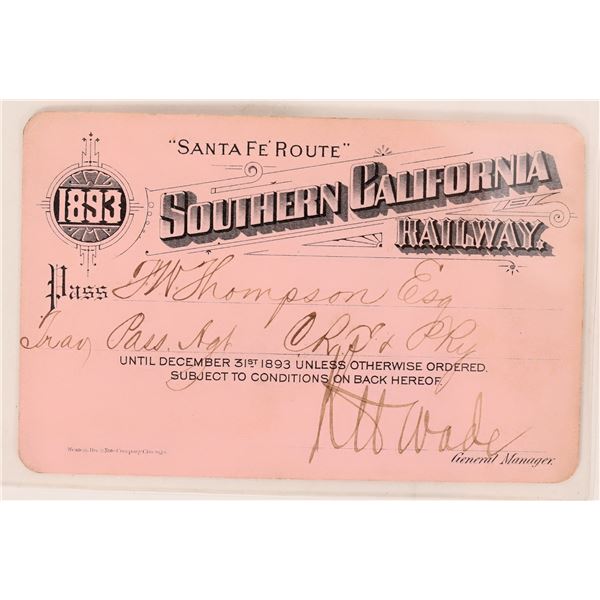 "SANTA FE ROUTE"
1893
SOUTHERN CALIFORNIA
RAILWAY.
Pass F W Thompson Esq
Trav Pass. Agt C R I & P Ry
UNTIL DECEMBER 31ST 1893 UNLESS OTHERWISE ORDERED.
SUBJECT TO CONDITIONS ON BACK HEREOF.
K H Wade
General Manager.
Western Bank Note Company Chicago